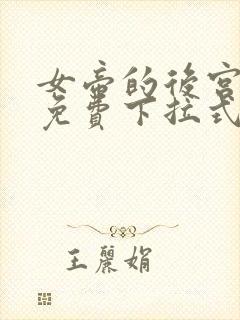 女帝的後宮
免費下拉式
王麗娟